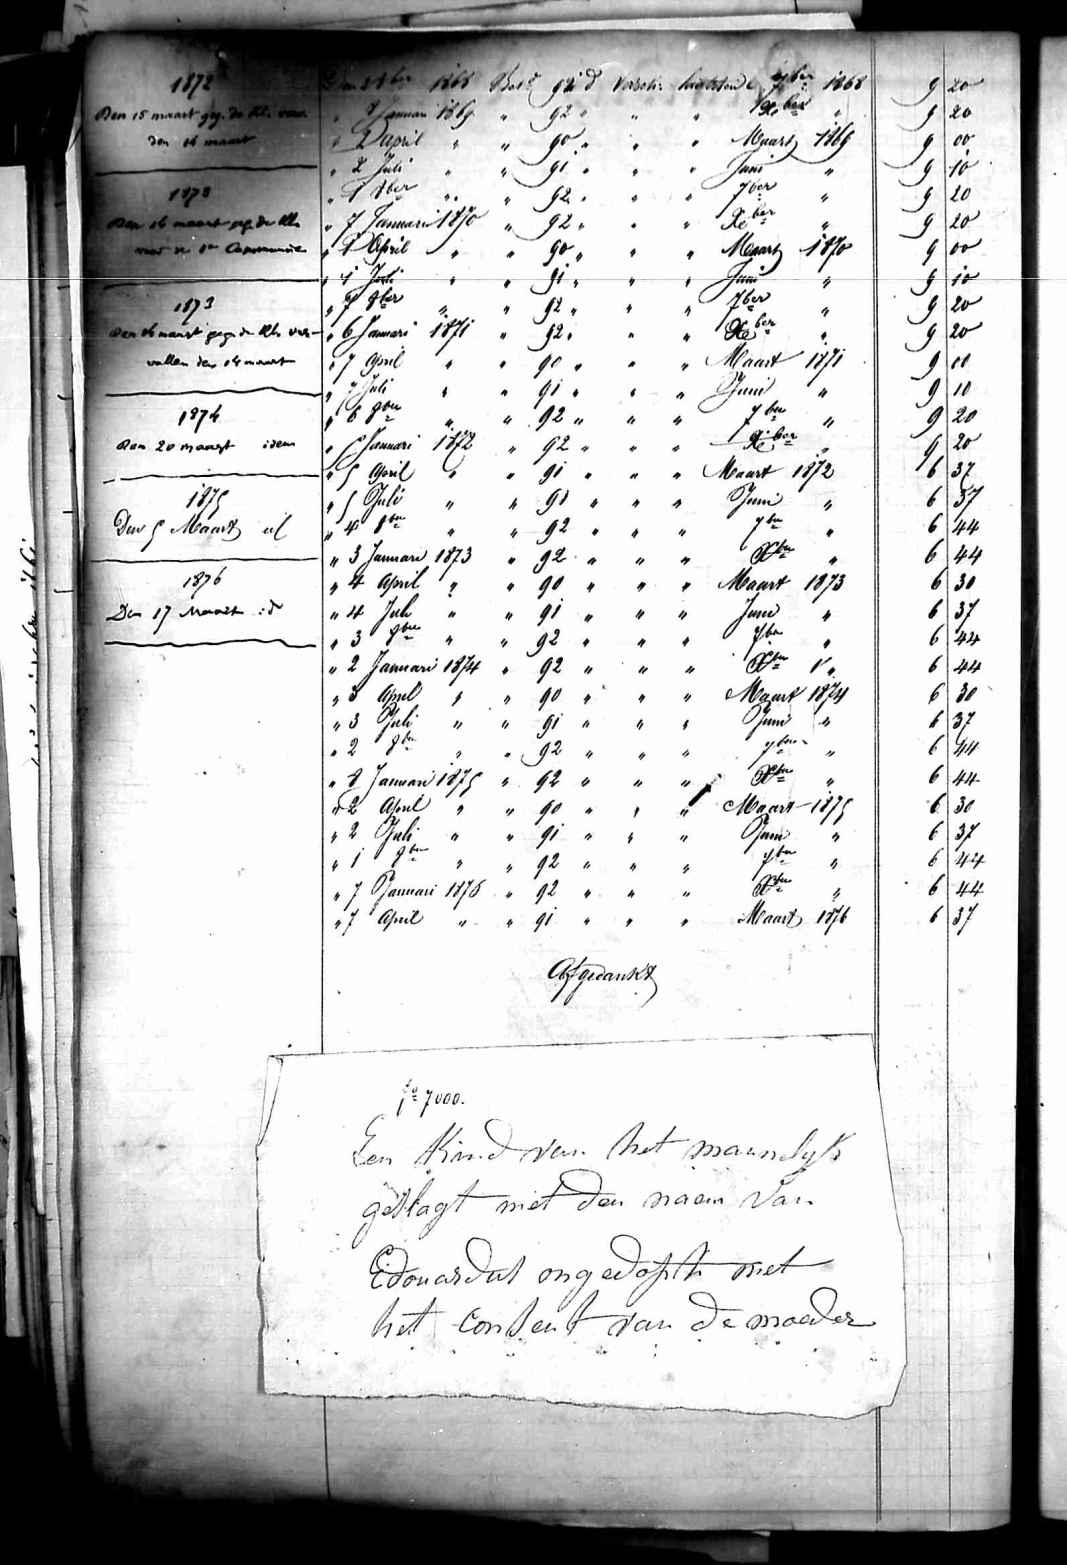 1872
Den 15 maart geg. de kl. van
den 14 maart
1873
Den 16 maart geg. de kl.
met de 1e Communie
1873
Den 16 maart gege de kl. ver-
vallen den 14 maart
1874
Den 20 maart idem
1875
Den 5 Maart id
1876
Den 17 Maart id
Den 8ber 1868 Bet. 92 d verSch. 7ber 1868 9 20
" 8 Januari 1869 " 92 " " " Xber " 9 20
" 2 april " " 90 " " " Maart 1869 9 00
" 2 Juli " " 91 " " " Juni " 9 10
" 1 8ber " " 92 " " " 7ber " 9 20
" 7 Januari 1870 " 92 " " " Xber " 9 20
" 1 April " " 90 " " " Maart 1870 9 00
" 1 Juli " " 91 " " " Juni " 9 10
" 7 8ber " " 92 " " " 7ber " 9 20
" 6 Januari 1871 " 92 " " " Xber " 9 20
" 7 April " " 90 " " " Maart 1871 9 00
" 7 Juli " " 91 " " " Juni " 9 10
" 6 8ber " " 92 " " " 7ber " 9 20
" 5 Januari 1872 " 92 " " " Xber " 9 20
" 5 April " " 91 " " " Maart 1872 6 37
" 5 Juli " " 91 " " " Juni " 6 37
" 4 8ber " " 92 " " " 7ber " 6 44
" 3 Januari 1873 " 92 " " " Xber " 6 44
" 4 April " " 90 " " " Maart 1873 6 30
" 4 Juli " " 91 " " " Juni " 6 37
" 3 8ber " " 92 " " " 7ber " 6 44
" 2 Januari 1874 " 92 " " " Xber " 6 44
" 3 April " " 90 " " " Maart 1874 6 30
" 3 Juli " " 91 " " " Juni " 6 37
" 2 8ber " " 92 " " " 7ber " 6 44
" 8 Januari 1875 " 92 " " " Xber " 6 44
" 2 April " " 90 " " " Maart 1875 6 30
" 2 Juli " " 91 " " " Juni " 6 37
" 1 8ber " " 92 " " " 7ber " 6 44
" 7 Januari 1876 " 92 " " " Xber " 6 44
" 7 April " " 91 " " " Maart 1876 6 37
Afgedankt
fo 7000.
Een Kind van het mannelyk
geslagt met den naem van
Edouardus ongedopth met
het consent van de moeder